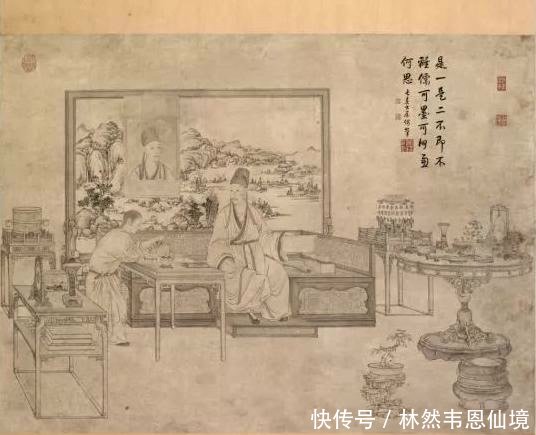 是一是二不即不
離儒可墨可何慮
何思 長春書屋偶筆
快传号 / 林然韦恩仙境